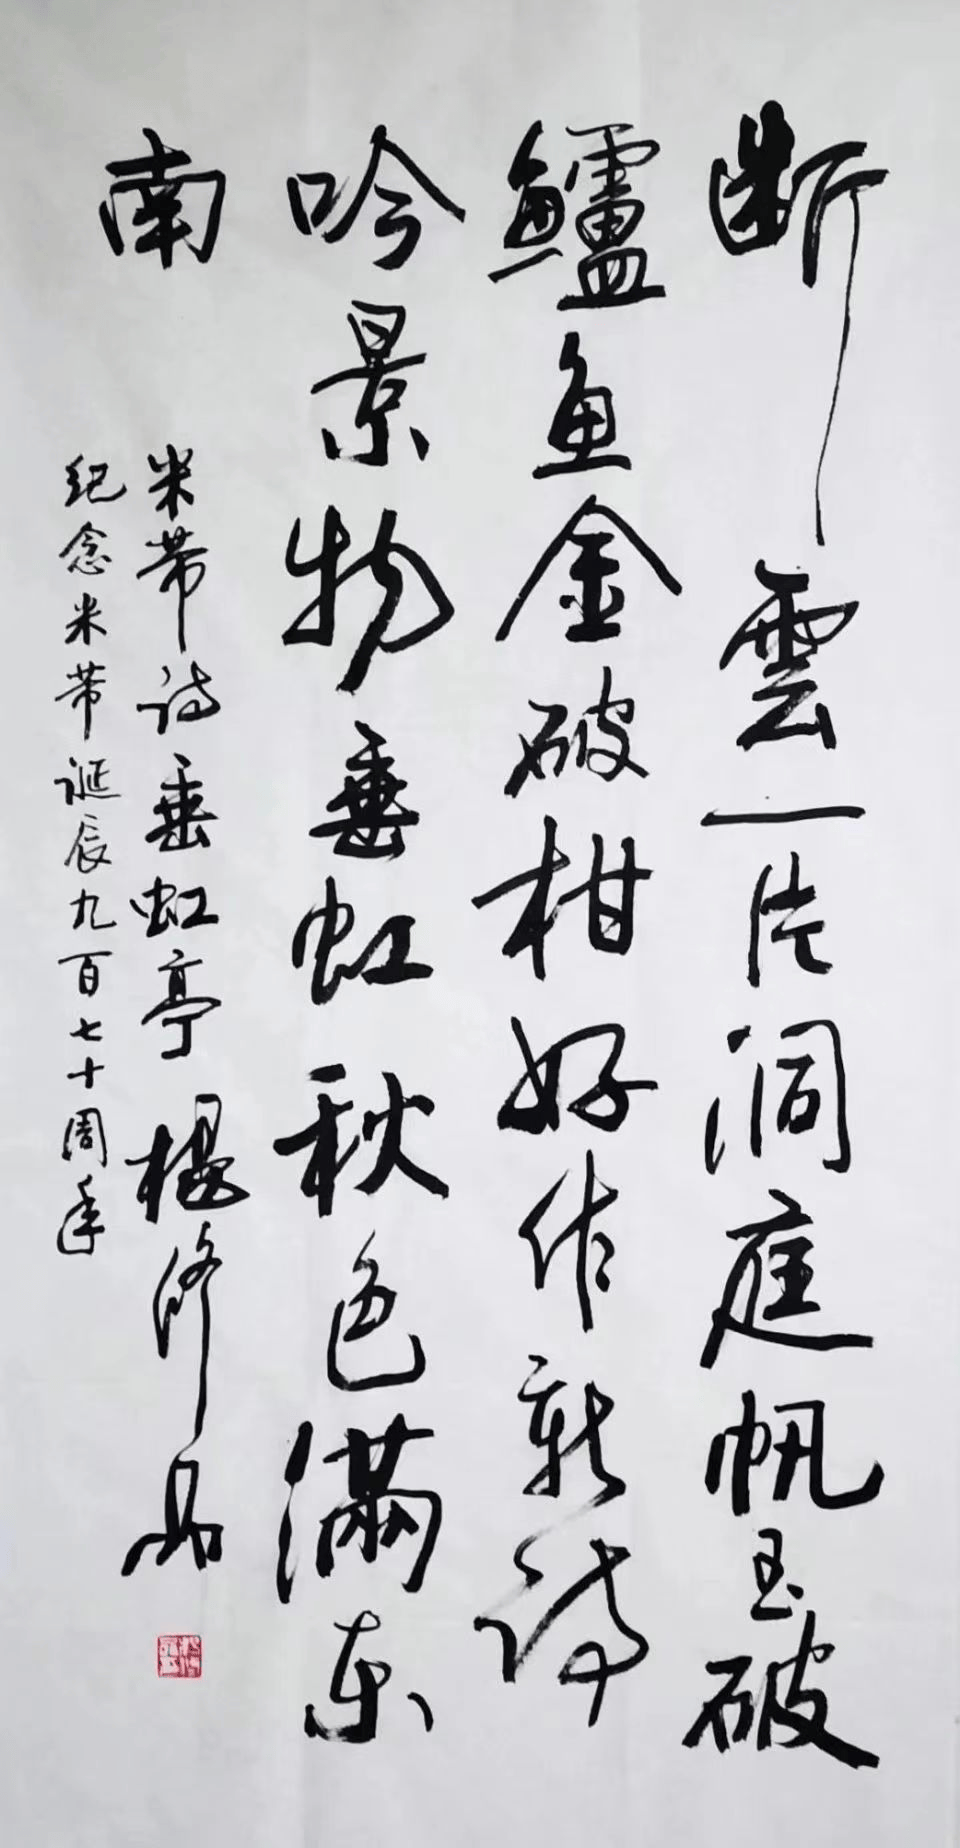 断雲一片洞庭帆玉破
鱸魚金破柑好作新詩
吟景物垂虹秋色滿东
南
米芾诗垂虹亭 楊修品
纪念米芾诞辰九百七十周年